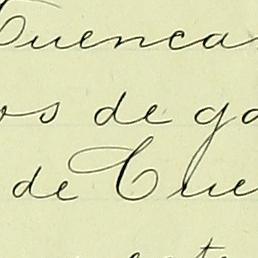 Cuenca
os de ga
de Cue